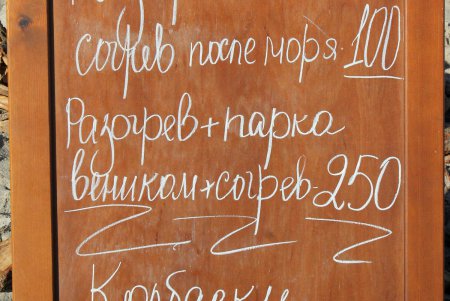 согрев после моря-100
Разогрев+парка
веником+согрев-250